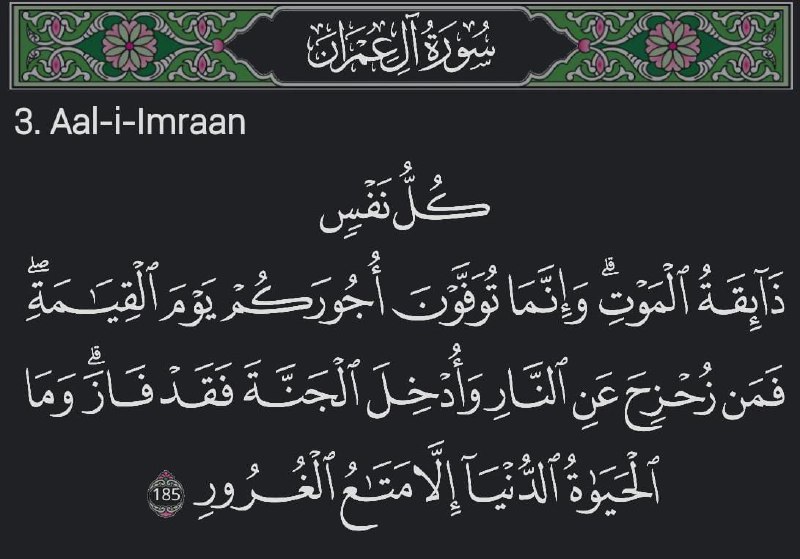 سُورَةُ آلِ عِمْرَانَ
3. Aal-i-Imraan
كُلُّ نَفْسٍ
ذَآئِقَةُ ٱلْمَوْتِ ۗ وَإِنَّمَا تُوَفَّوْنَ أُجُورَكُمْ يَوْمَ ٱلْقِيَـٰمَةِ ۖ
فَمَن زُحْزِحَ عَنِ ٱلنَّارِ وَأُدْخِلَ ٱلْجَنَّةَ فَقَدْ فَازَ ۗ وَمَا
ٱلْحَيَوٰةُ ٱلدُّنْيَآ إِلَّا مَتَـٰعُ ٱلْغُرُورِ 185